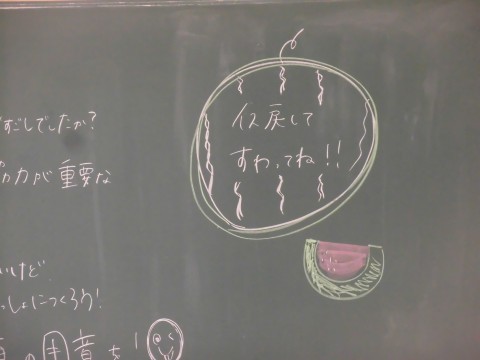 すごしでしたか?
力が重要な
いけど
っしょにつくろう!
の用意を!
イス戻して
すわってね!!